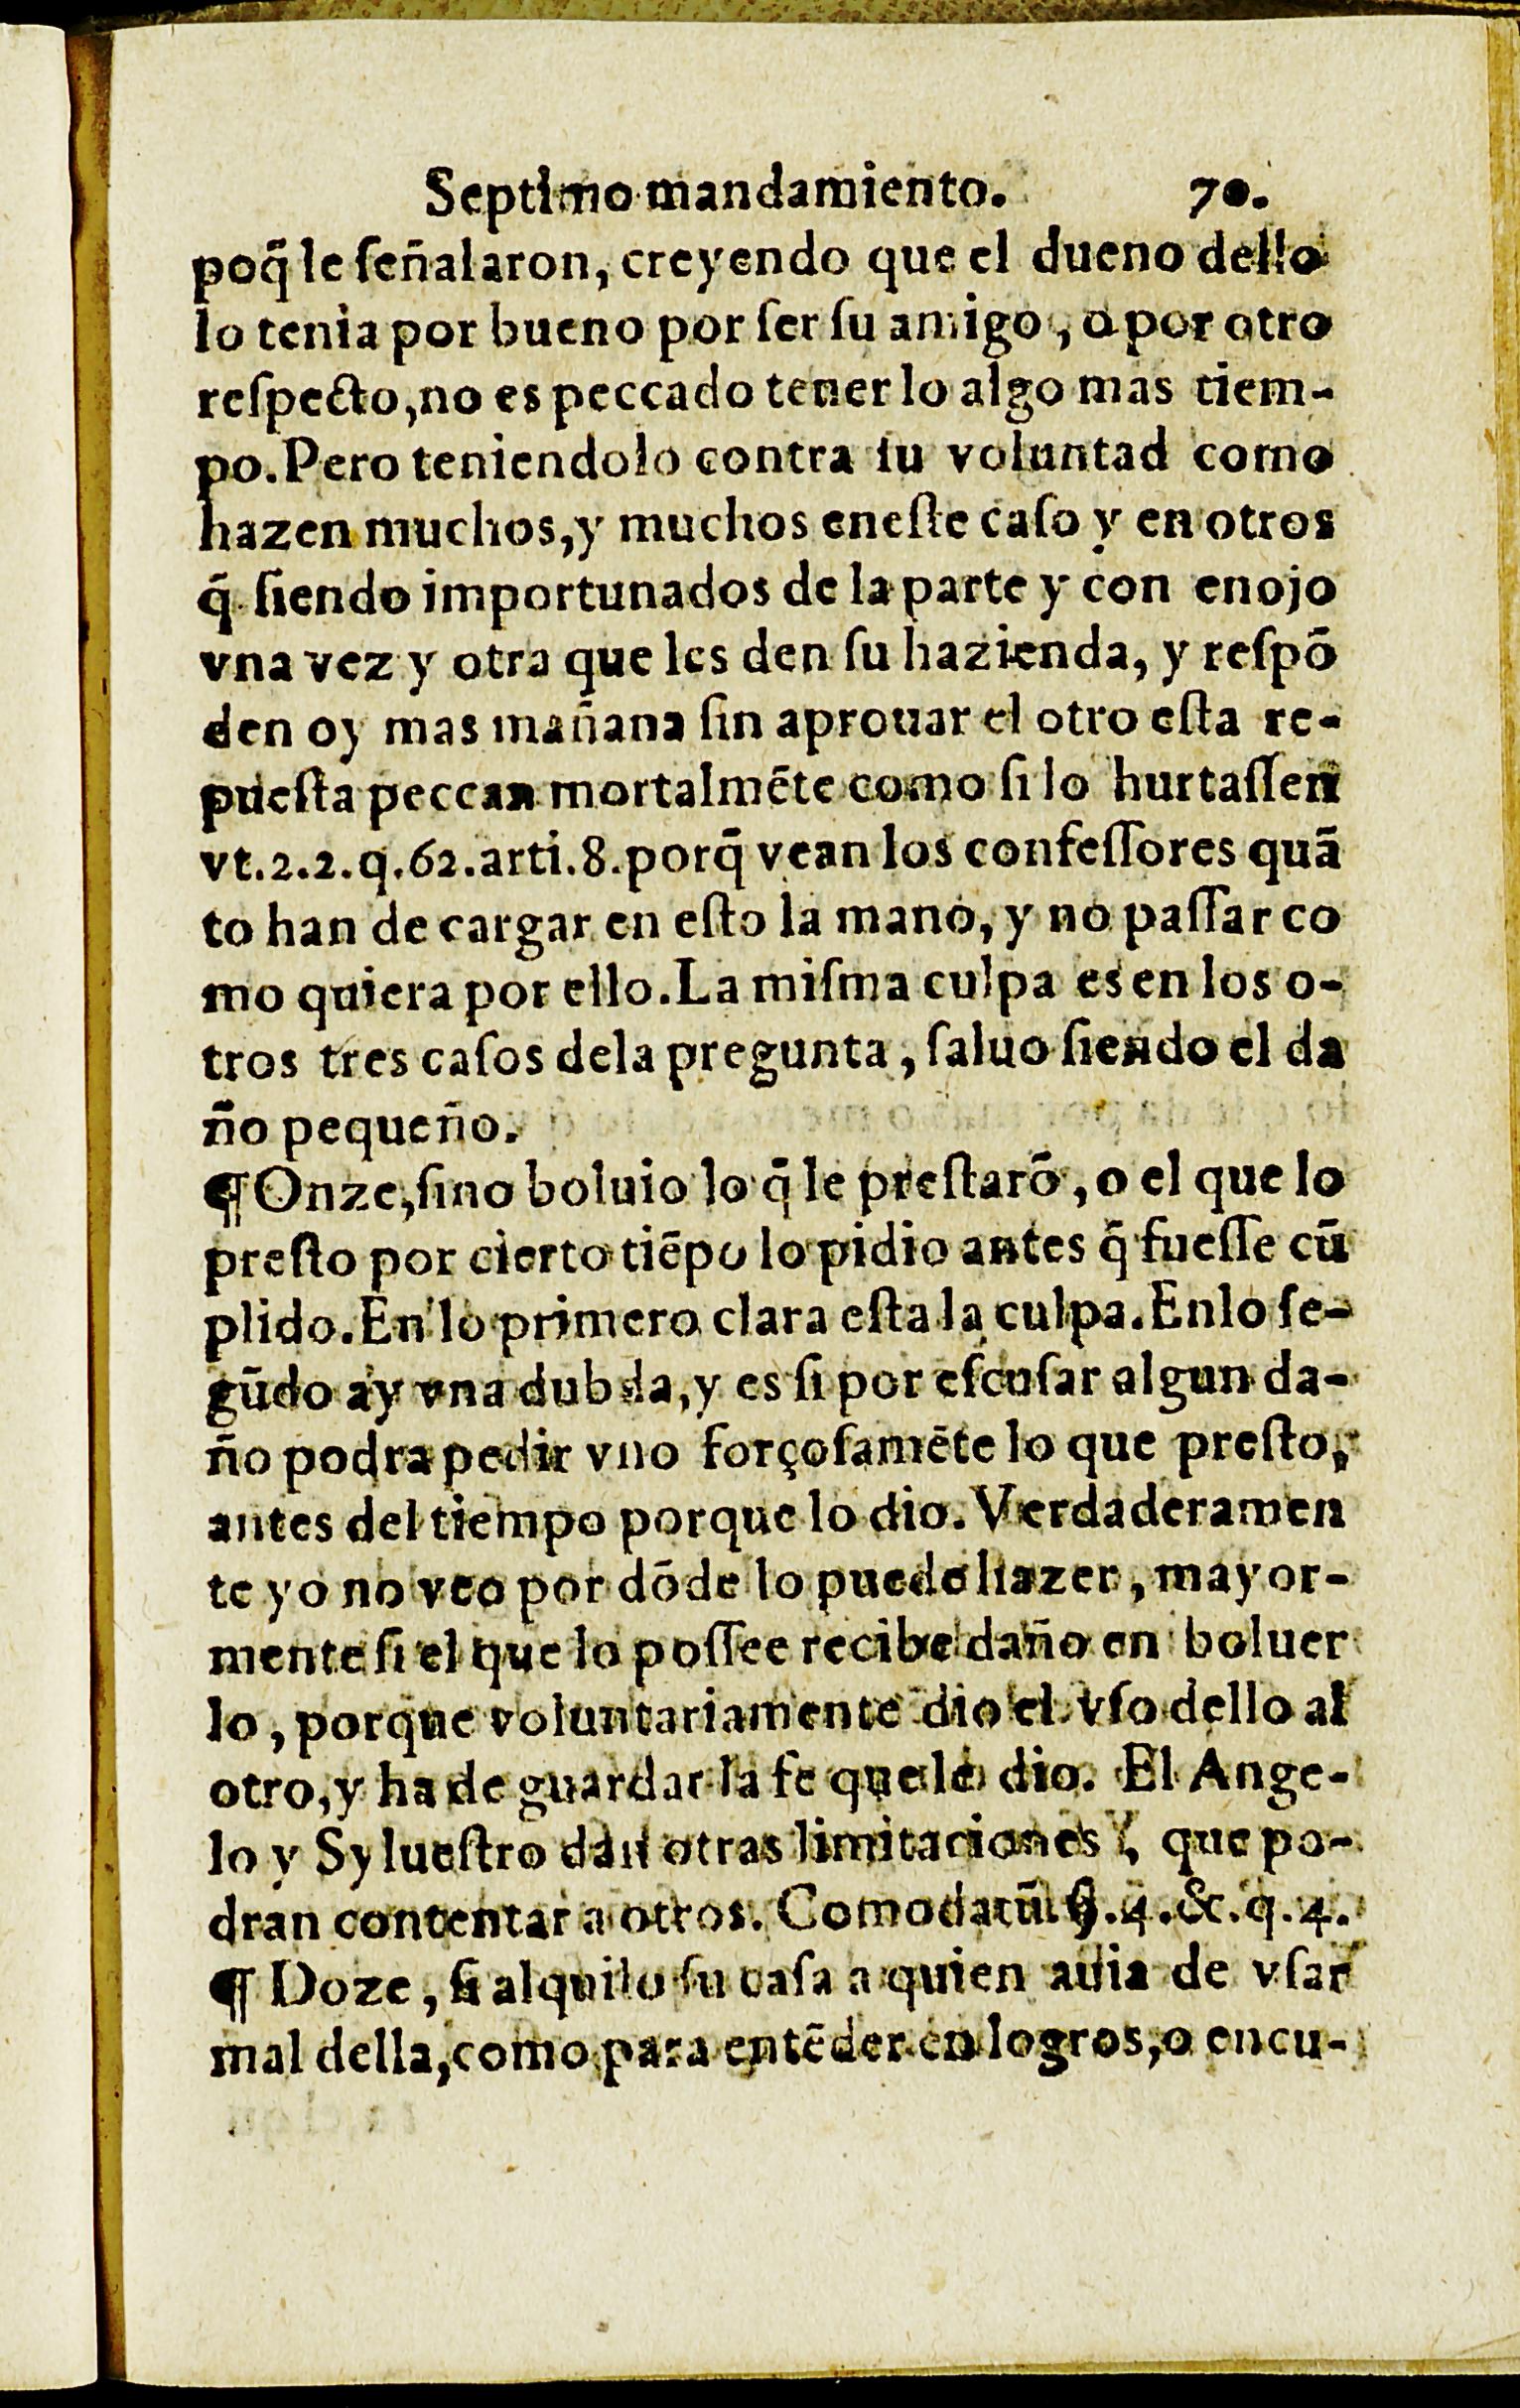 Septimo mandamiento. 70.
poq̃ le ſeñalaron, creyendo que el dueno dello
lo tenia por bueno por ſer ſu amigo, o por otro
reſpecto, no es peccado tener lo algo mas tiem-
po. Pero teniendolo contra ſu voluntad como
hazen muchos, y muchos eneſte caſo y en otros
q̃ ſiendo importunados de la parte y con enojo
vna vez y otra que les den ſu hazienda, y reſpõ
den oy mas mañana ſin aprouar el otro eſta re-
pueſta peccan mortalmẽte como ſi lo hurtaſſen
vt.2.2.q.62.arti.8. porq̃ vean los confeſſores quã
to han de cargar en eſto la mano, y no paſſar co
mo quiera por ello. La miſma culpa es en los o-
tros tres caſos dela pregunta, ſaluo ſiendo el da
ño pequeño.
¶ Onze, ſino boluio lo q̃ le preſtarõ, o el que lo
preſto por cierto tiẽpo lo pidio antes q̃ fueſſe cũ
plido. En lo primero clara eſta la culpa. Enlo ſe-
gũdo ay vna dubda, y es ſi por eſcuſar algun da-
ño podra pedir vno forçoſamẽte lo que preſto,
antes del tiempo porque lo dio. Verdaderamen
te yo no veo por dõde lo puede hazer, mayor-
mente ſi el que lo poſſee recibe daño en boluer
lo, porque voluntariamente dio el vſo dello al
otro, y ha de guardar la fe que le dio. El Ange-
lo y Sylueſtro dan otras limitaciones, que po-
dran contentar a otros. Comodatũ. §.4.&.q.4.
¶ Doze, ſi alquilo ſu caſa a quien auia de vſar
mal della, como para entẽder en logros, o encu-